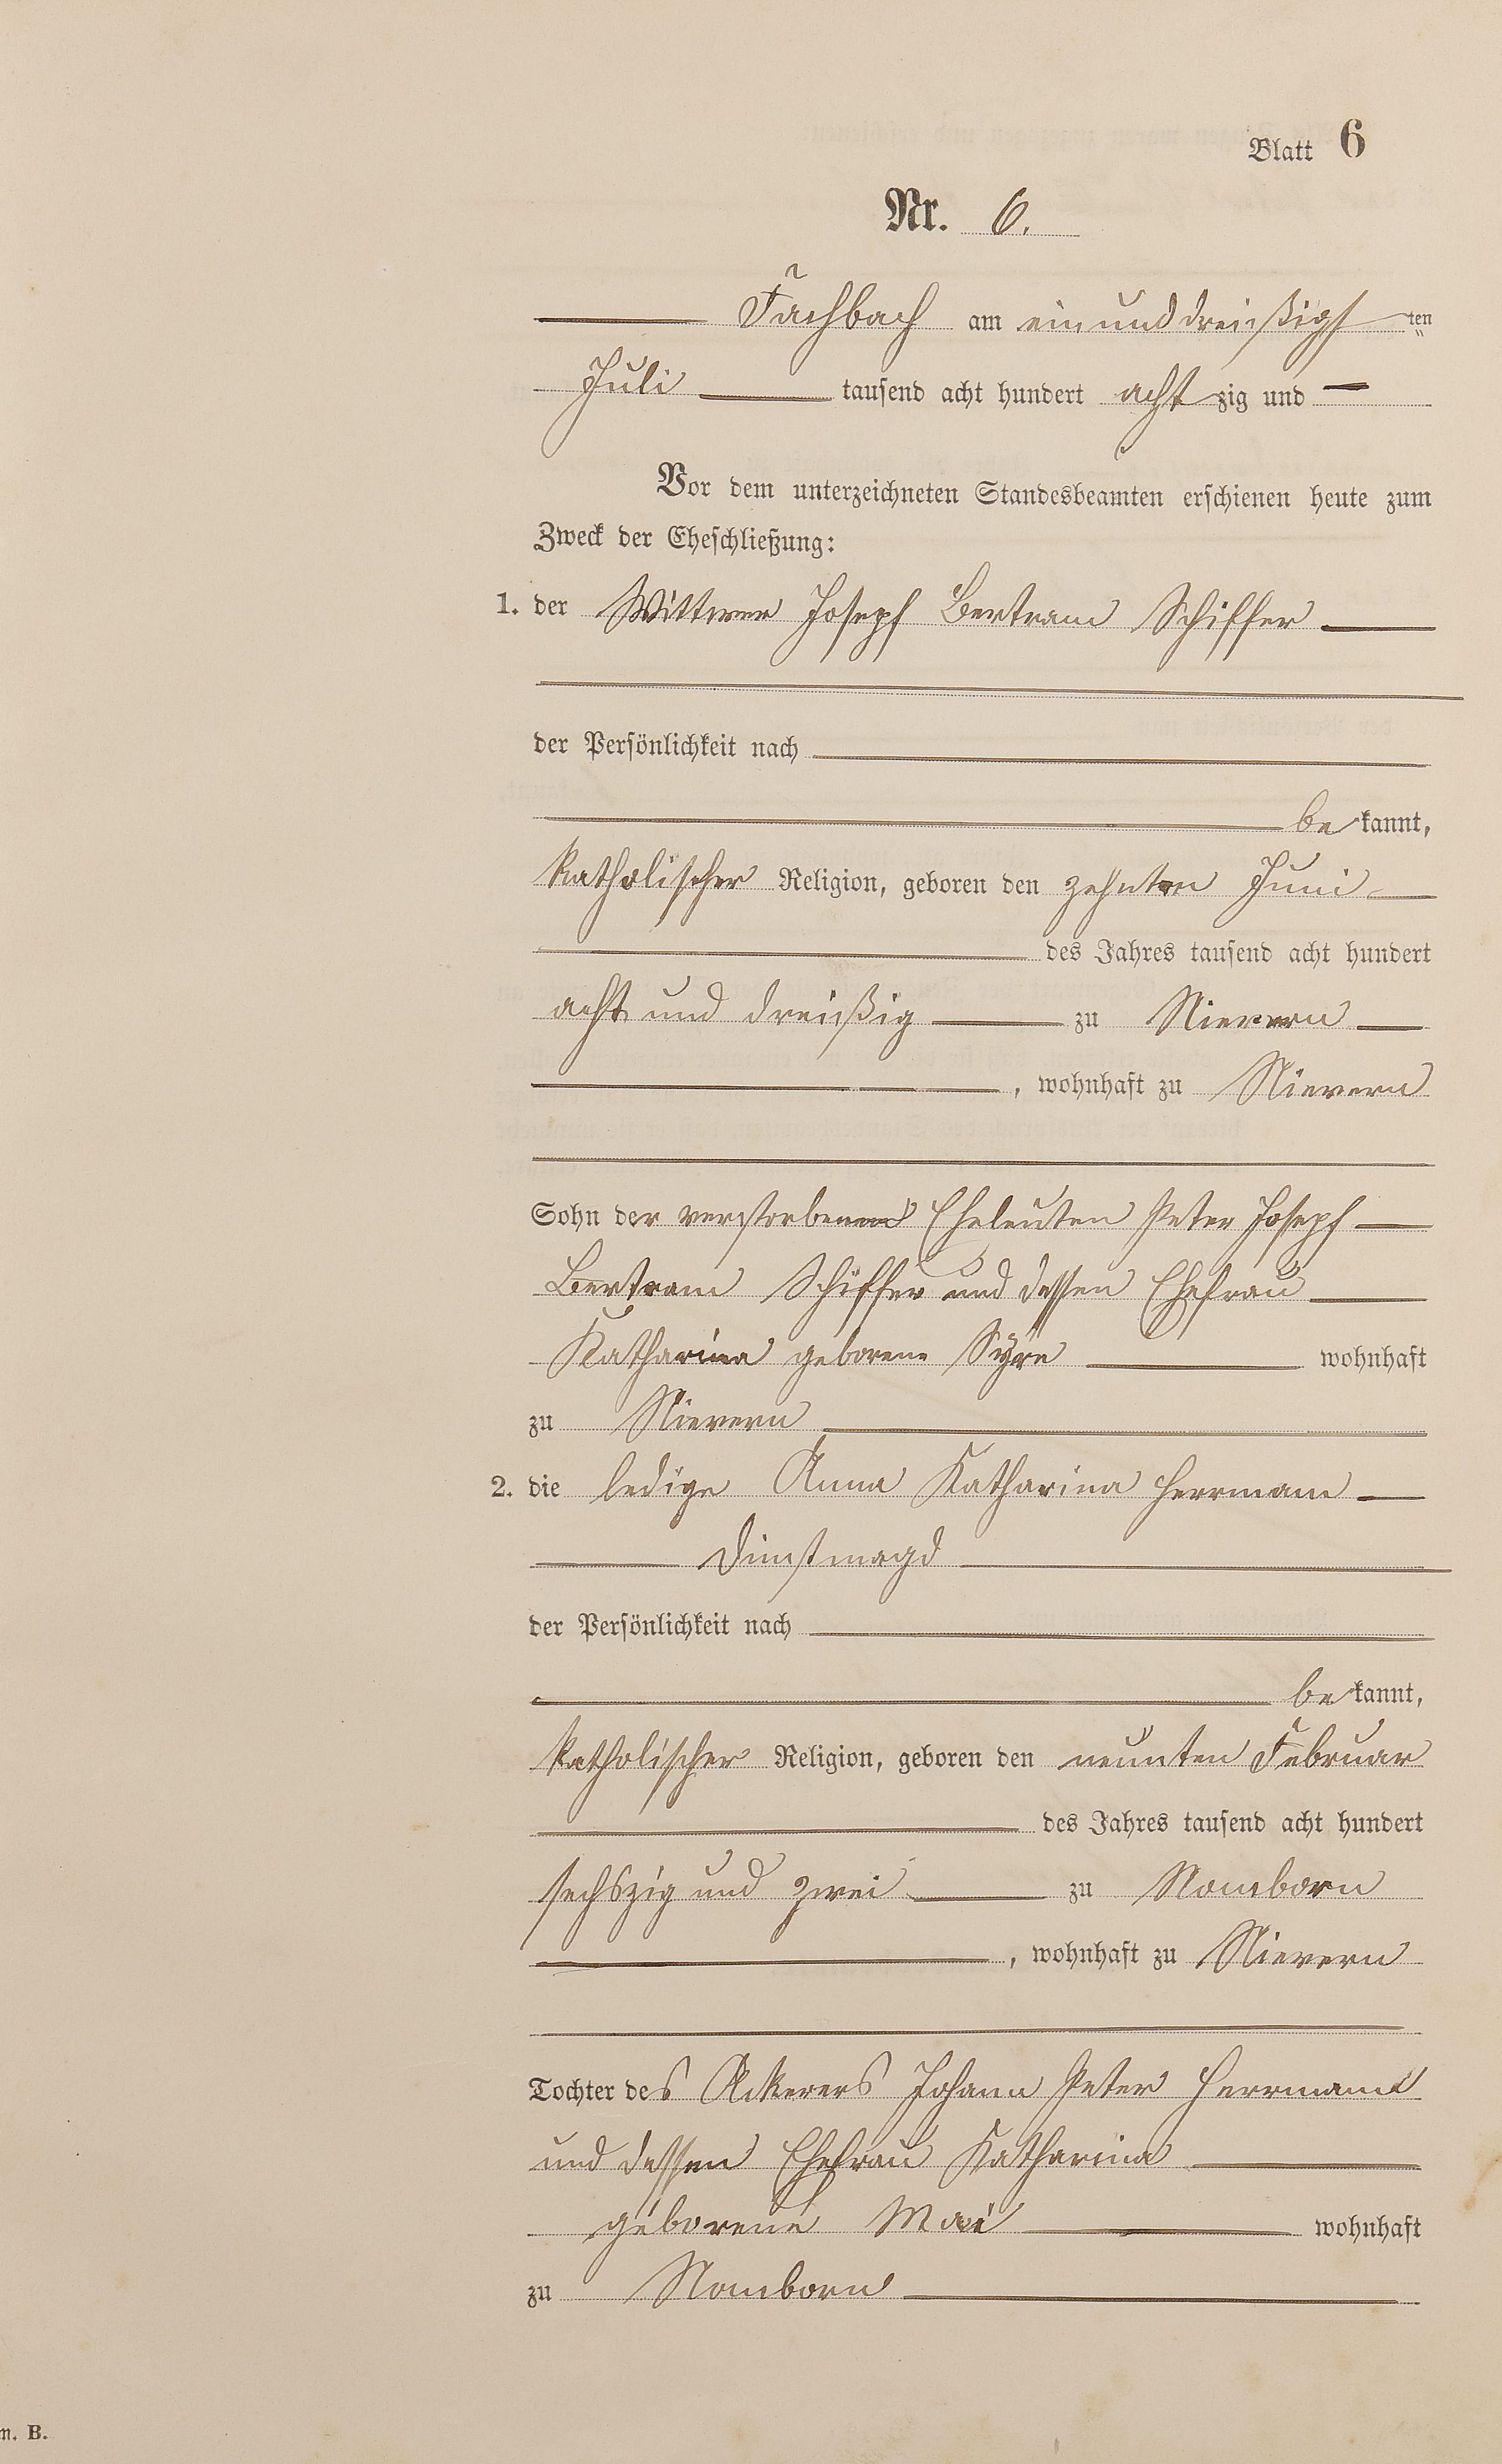 Blatt 6
Nr. 6.
Fachbach am einunddreißigsten
Juli tausend acht hundert achtzig und
Vor dem unterzeichneten Standesbeamten erschienen heute zum
Zweck der Eheschließung:
1. der Wittwer Joseph Bertram Schiffer
der Persönlichkeit nach
bekannt,
katholischer Religion, geboren den zehnten Juni
des Jahres tausend acht hundert
acht und dreißig zu Nievern
, wohnhaft zu Nievern
Sohn der verstorbenen Eheleuten Peter Joseph
Bertram Schiffer und dessen Ehefrau
Katharina geborene Syre wohnhaft
zu Nievern
2. die ledige Anna Katharina Herrmann
Dinstmagd
der Persönlichkeit nach
bekannt,
katholischer Religion, geboren den neunten Februar
des Jahres tausend acht hundert
sechszig und zwei zu Nomborn
, wohnhaft zu Nievern
Tochter des Ackerers Johann Peter Herrmann
und dessen Ehefrau Katharina
geborene Mai wohnhaft
zu Nomborn
m. B.